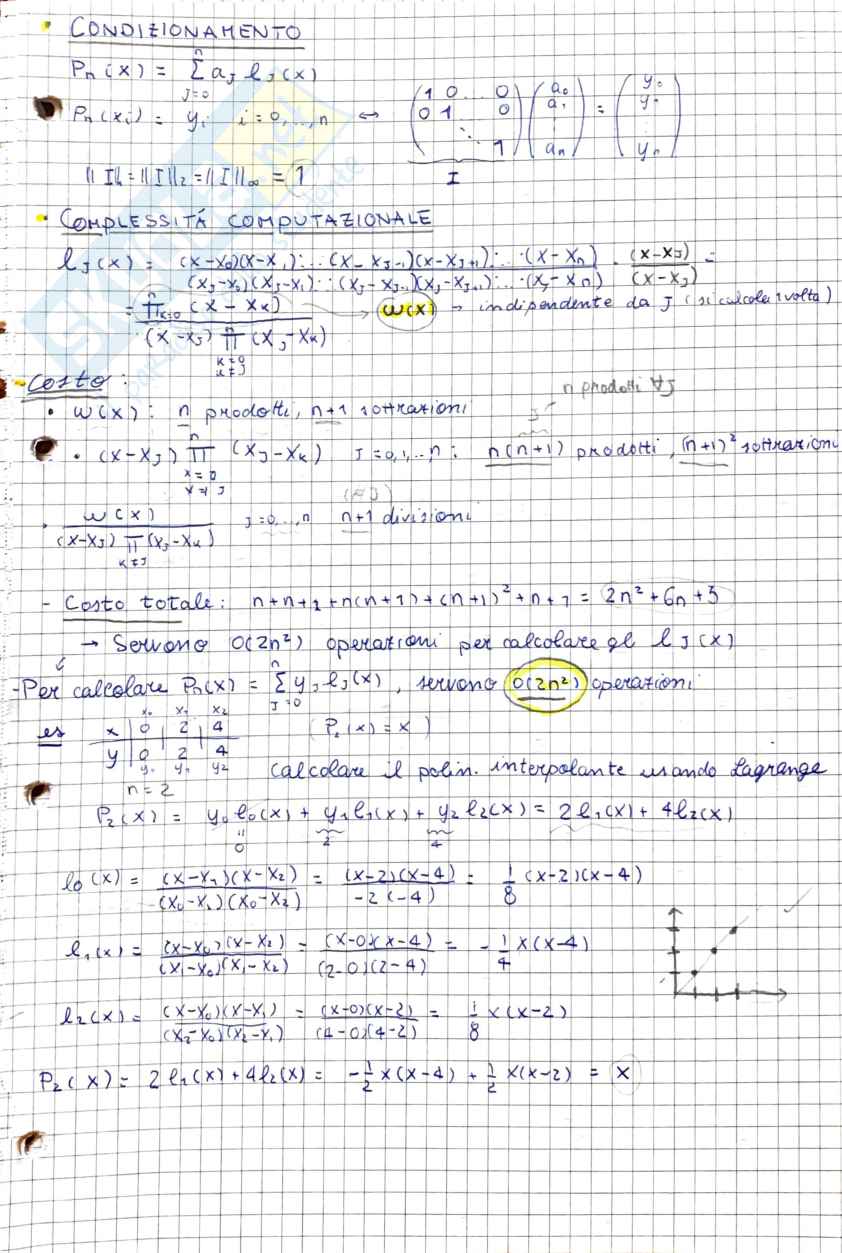 • CONDIZIONAMENTO
Pn(x) = Σ_{J=0}^{n} a_J l_J(x)
Pn(xi) = yi i=0,...,n ↔ (1 0 ... 0 / 0 1 ... 0 / ⋱ / 1) (a0 / a1 / ⋮ / an) = (y0 / y1 / ⋮ / yn)
||I||1 = ||I||2 = ||I||∞ = 1 I
• COMPLESSITÁ COMPUTAZIONALE
l_J(x) = (x-x0)(x-x1)·...·(x-x_{J-1})(x-x_{J+1})·...·(x-xn) / (xJ-x0)(xJ-x1)·...·(xJ-x_{J-1})(xJ-x_{J+1})·...·(xJ-xn) · (x-xJ)/(x-xJ) =
= Π_{k=0}^{n} (x-xk) / (x-xJ) Π_{k=0, k≠J}^{n} (xJ-xk) → w(x) → indipendente da J (si calcola 1 volta)
- Costo:
n prodotti ∀J
• w(x): n prodotti, n+1 sottrazioni
• (x-xJ) Π_{x=0, x≠J}^{n} (xJ-xk) J=0,1,..,n: n(n+1) prodotti, (n+1)² sottrazioni
• w(x) / (x-xJ) Π_{k≠J} (xJ-xk) J=0,...,n n+1 divisioni
- Costo totale: n+n+1+n(n+1)+(n+1)²+n+1 = 2n²+6n+3
→ Servono O(2n²) operazioni per calcolare gl l_J(x)
- Per calcolare Pn(x) = Σ_{J=0}^{n} yJ lJ(x), servono O(2n²) operazioni
x0 x1 x2
es x | 0 | 2 | 4 (P2(x) = x)
y | 0 | 2 | 4
y0 y1 y2
calcolare il polin. interpolante usando Lagrange
n = 2
P2(x) = y0 l0(x) + y1 l1(x) + y2 l2(x) = 2l1(x) + 4l2(x)
= 0 2 4
l0(x) = (x-x1)(x-x2) / (x0-x1)(x0-x2) = (x-2)(x-4) / -2(-4) = 1/8 (x-2)(x-4)
l1(x) = (x-x0)(x-x2) / (x1-x0)(x1-x2) = (x-0)(x-4) / (2-0)(2-4) = -1/4 x(x-4)
l2(x) = (x-x0)(x-x1) / (x2-x0)(x2-x1) = (x-0)(x-2) / (4-0)(4-2) = 1/8 x(x-2)
P2(x) = 2l1(x) + 4l2(x) = -1/2 x(x-4) + 1/2 x(x-2) = x